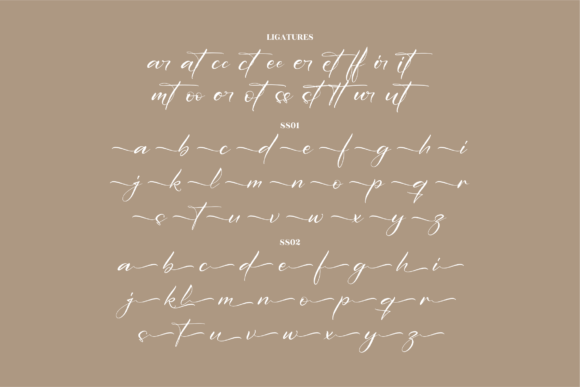 LIGATURES
ar at cc ct ee er et ff ir it
mt oo or ot ss st tt ur ut
SS01
a b c d e f g h i
j k l m n o p q r
s t u v w x y z
SS02
a b c d e f g h i
j k l m n o p q r
s t u v w x y z